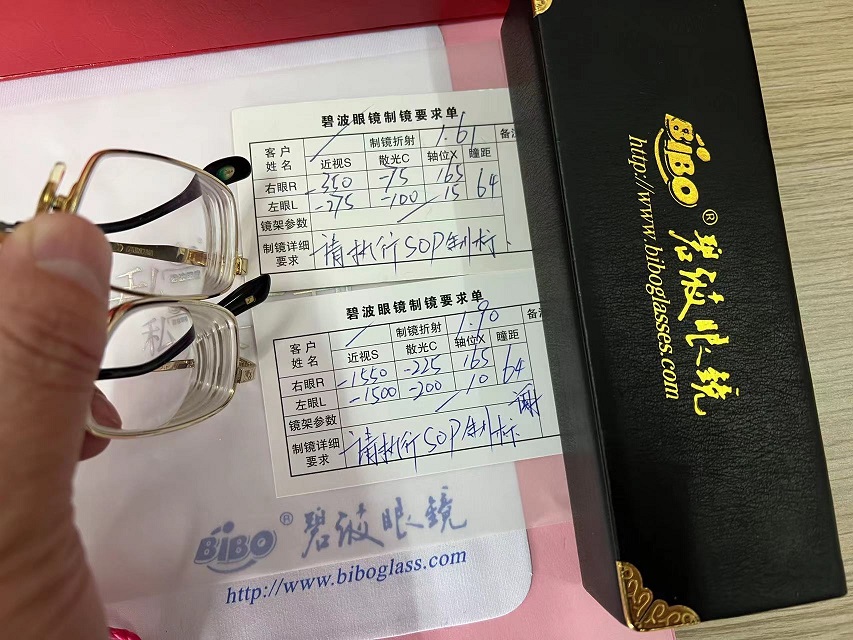 碧波眼镜制镜要求单
客户姓名 制镜折射 1.61 备注
近视S 散光C 轴位X 瞳距
右眼R -350 -75 165 64
左眼L -275 -100 15
镜架参数
制镜详细要求 请执行SOP制标
碧波眼镜制镜要求单
客户姓名 制镜折射 1.90 备
近视S 散光C 轴位X 瞳距
右眼R -1550 -225 165 64
左眼L -1500 -200 10
镜架参数
制镜详细要求 请执行SOP制标 谢
BiBO® 碧波眼镜
http://www.biboglass.com
BiBO® 碧波眼镜
http://www.biboglasses.com